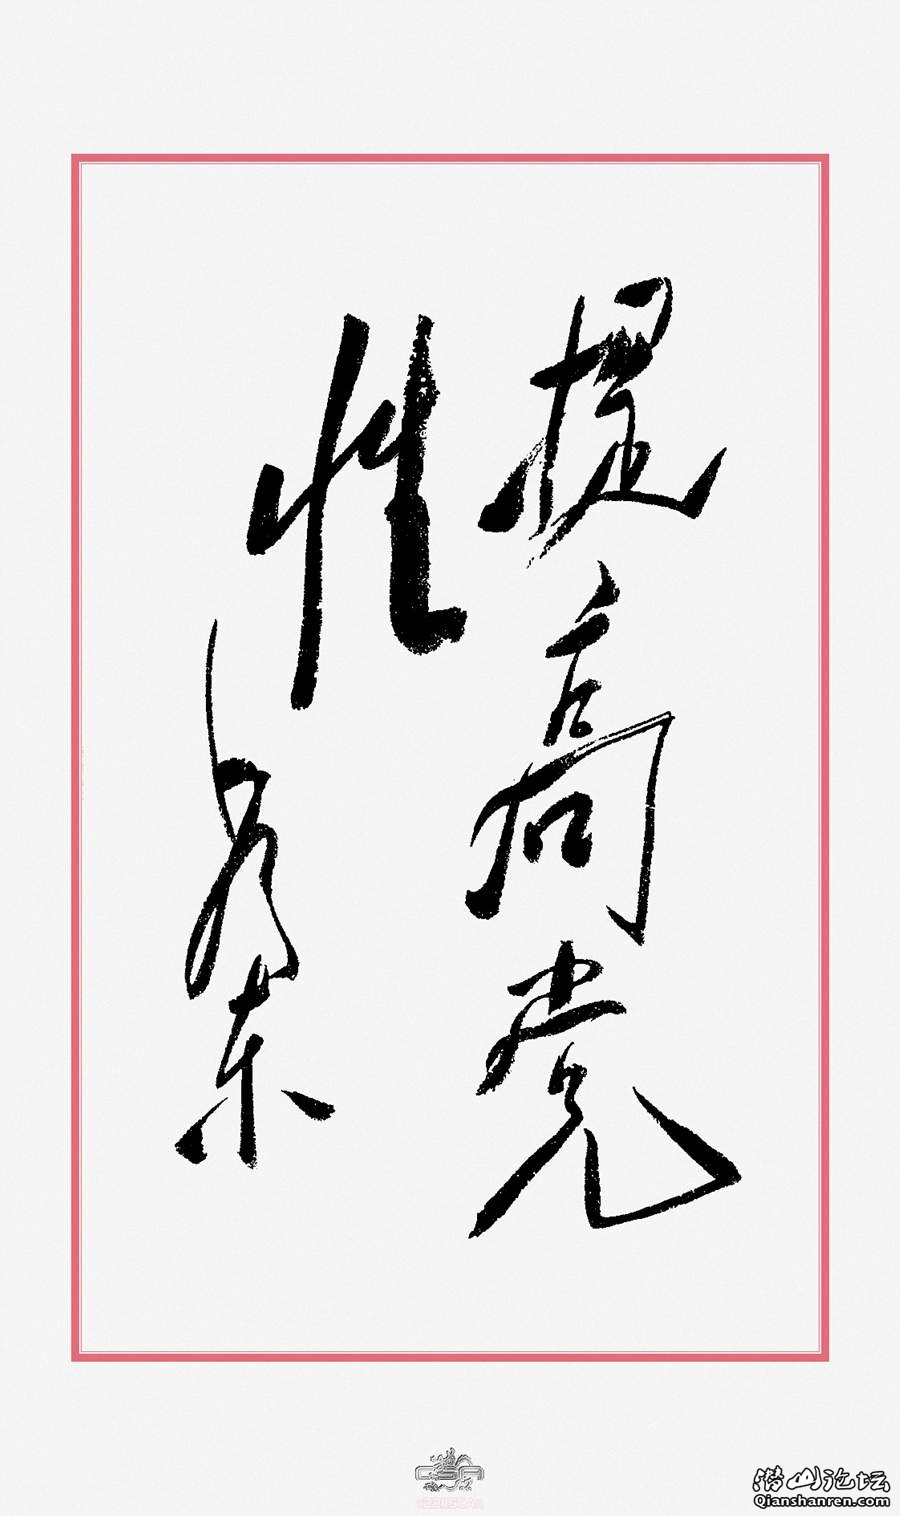 提高党
性
毛泽东
潜山论坛
Qianshanren.com